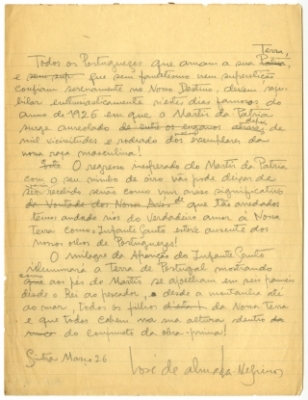 Terra,
Todos os Portuguezes que amam a sua Patria
e que sem fanatismo nem superstição
confiam serenamente no Nosso Destino, devem
enthusiasticamente n'estes dias famosos do
anno de 1926 em que o Martir da Patria
surge aureolado de depois
mil vicissitudes e rodeado dos exemplares da
nossa raça masculina!
O regresso inesperado do Martir da Patria
com o seu não póde deixar de
ser recebido senão como um aviso significativo
da Vontade dos Nossos Avós de que tão arredados
temos andado nós do Verdadeiro amor á Nossa
Terra como o Infante Santo esteve ausente dos
nossos olhos de Portuguezes!
O milagre da Aparição do Infante Santo
illuminára a Terra de Portugal mostrando
aos pés do Martir se ajoelham
desde o Rei ao pescador, e desde a montanha até
ao mar, todos os filhos da Nossa Terra
e que todos cabem na sua altura dentro da
do conjuncto da obra-prima!
Sintra Março 26
José de Almada-Negreiros